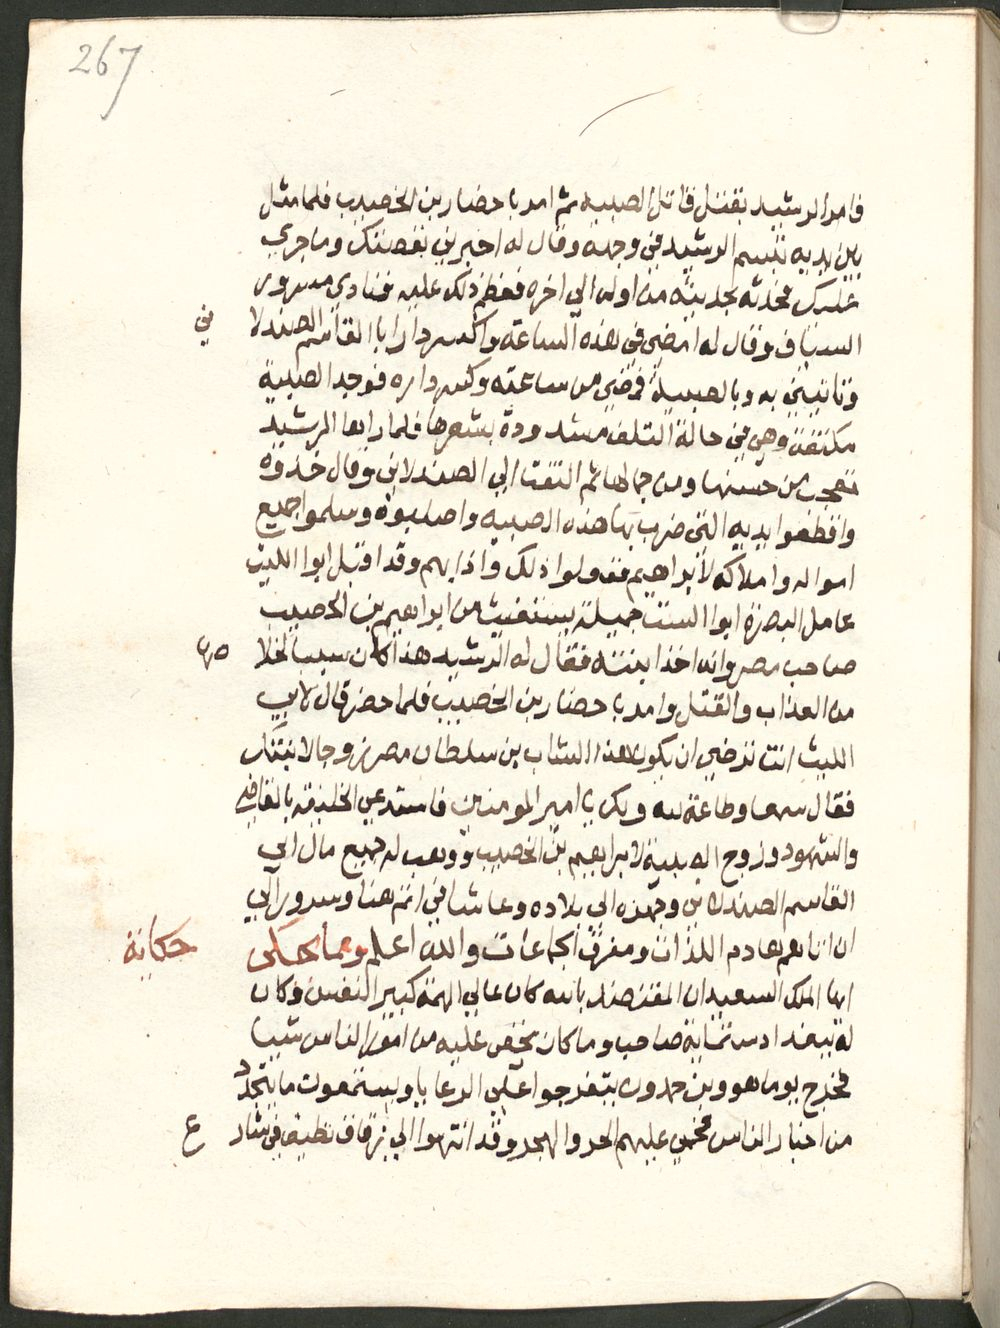 267
فامر الرشيد بقتل قاتل الصبيه ثم امر باحضار بن الخصيب فلما مثل
بين يديه تبسم الرشيد في وجهه وقال له اخبرني بقصتك وما جري
عليك فحدثه بحديثه من اوله الي اخره فعظم ذلك عليه فنادي مسرور
السياف وقال له امضي في هذه الساعة واكبس دار ابا القاسم الصندلا
ني
وتاتيني به وبالصبية فمضي من ساعته وكبس داره فوجد الصبية
مكتفة وهي في حالة التلف مشدودة بشعرها فلما راها الرشيد
تعجب من حسنها ومن جمالها ثم التفت الي الصندلاني وقال خذوه
واقطعوا يديه التي ضرب بها هذه الصبيه واصلبوه وسلموا جميع
امواله واملاكه لابراهيم ففعلوا ذلك واذا بهم وقد اقبل ابوا الليث
عامل البصرة ابوا الست جميلة يستغيث من ابراهيم بن الخصيب
صاحب مصر وانه اخذ ابنته فقال له الرشيد هذا كان سببا لخلا
صها
من العذاب والقتل وامر باحضار بن الخصيب فلما حضر قال لابي
الليث انت ترضي ان يكون هذا الشاب بن سلطان مصر زوجا لابنتك
فقال سمعا وطاعة لله ولك يا امير المومنين فاستدعي الخليفه بالقاضي
والشهود وزوج الصبية لابراهيم بن الخصيب ووهب له جميع مال ابي
القاسم الصندلاني وجهزه الي بلاده وعاشا في اتم هنا وسرور الي
ان اتاهم هادم اللذات ومفرق الجماعات والله اعلم ومما يحكي
حكاية
ان الملك السعيد ان المعتضد بالله كان عالي الهمة كبير النفس وكان
له ببغداد ستماية صاحب وما كان يخفي عليه من امور الناس شييا
فخرج يوما هو وبن حمدون يتفرجوا علي الرعايا ويستمعون ما يتجدد
من اخبار الناس فحمي عليهم الحر والهجر وقد انتهوا الي زقاق نظيف في شار
ع